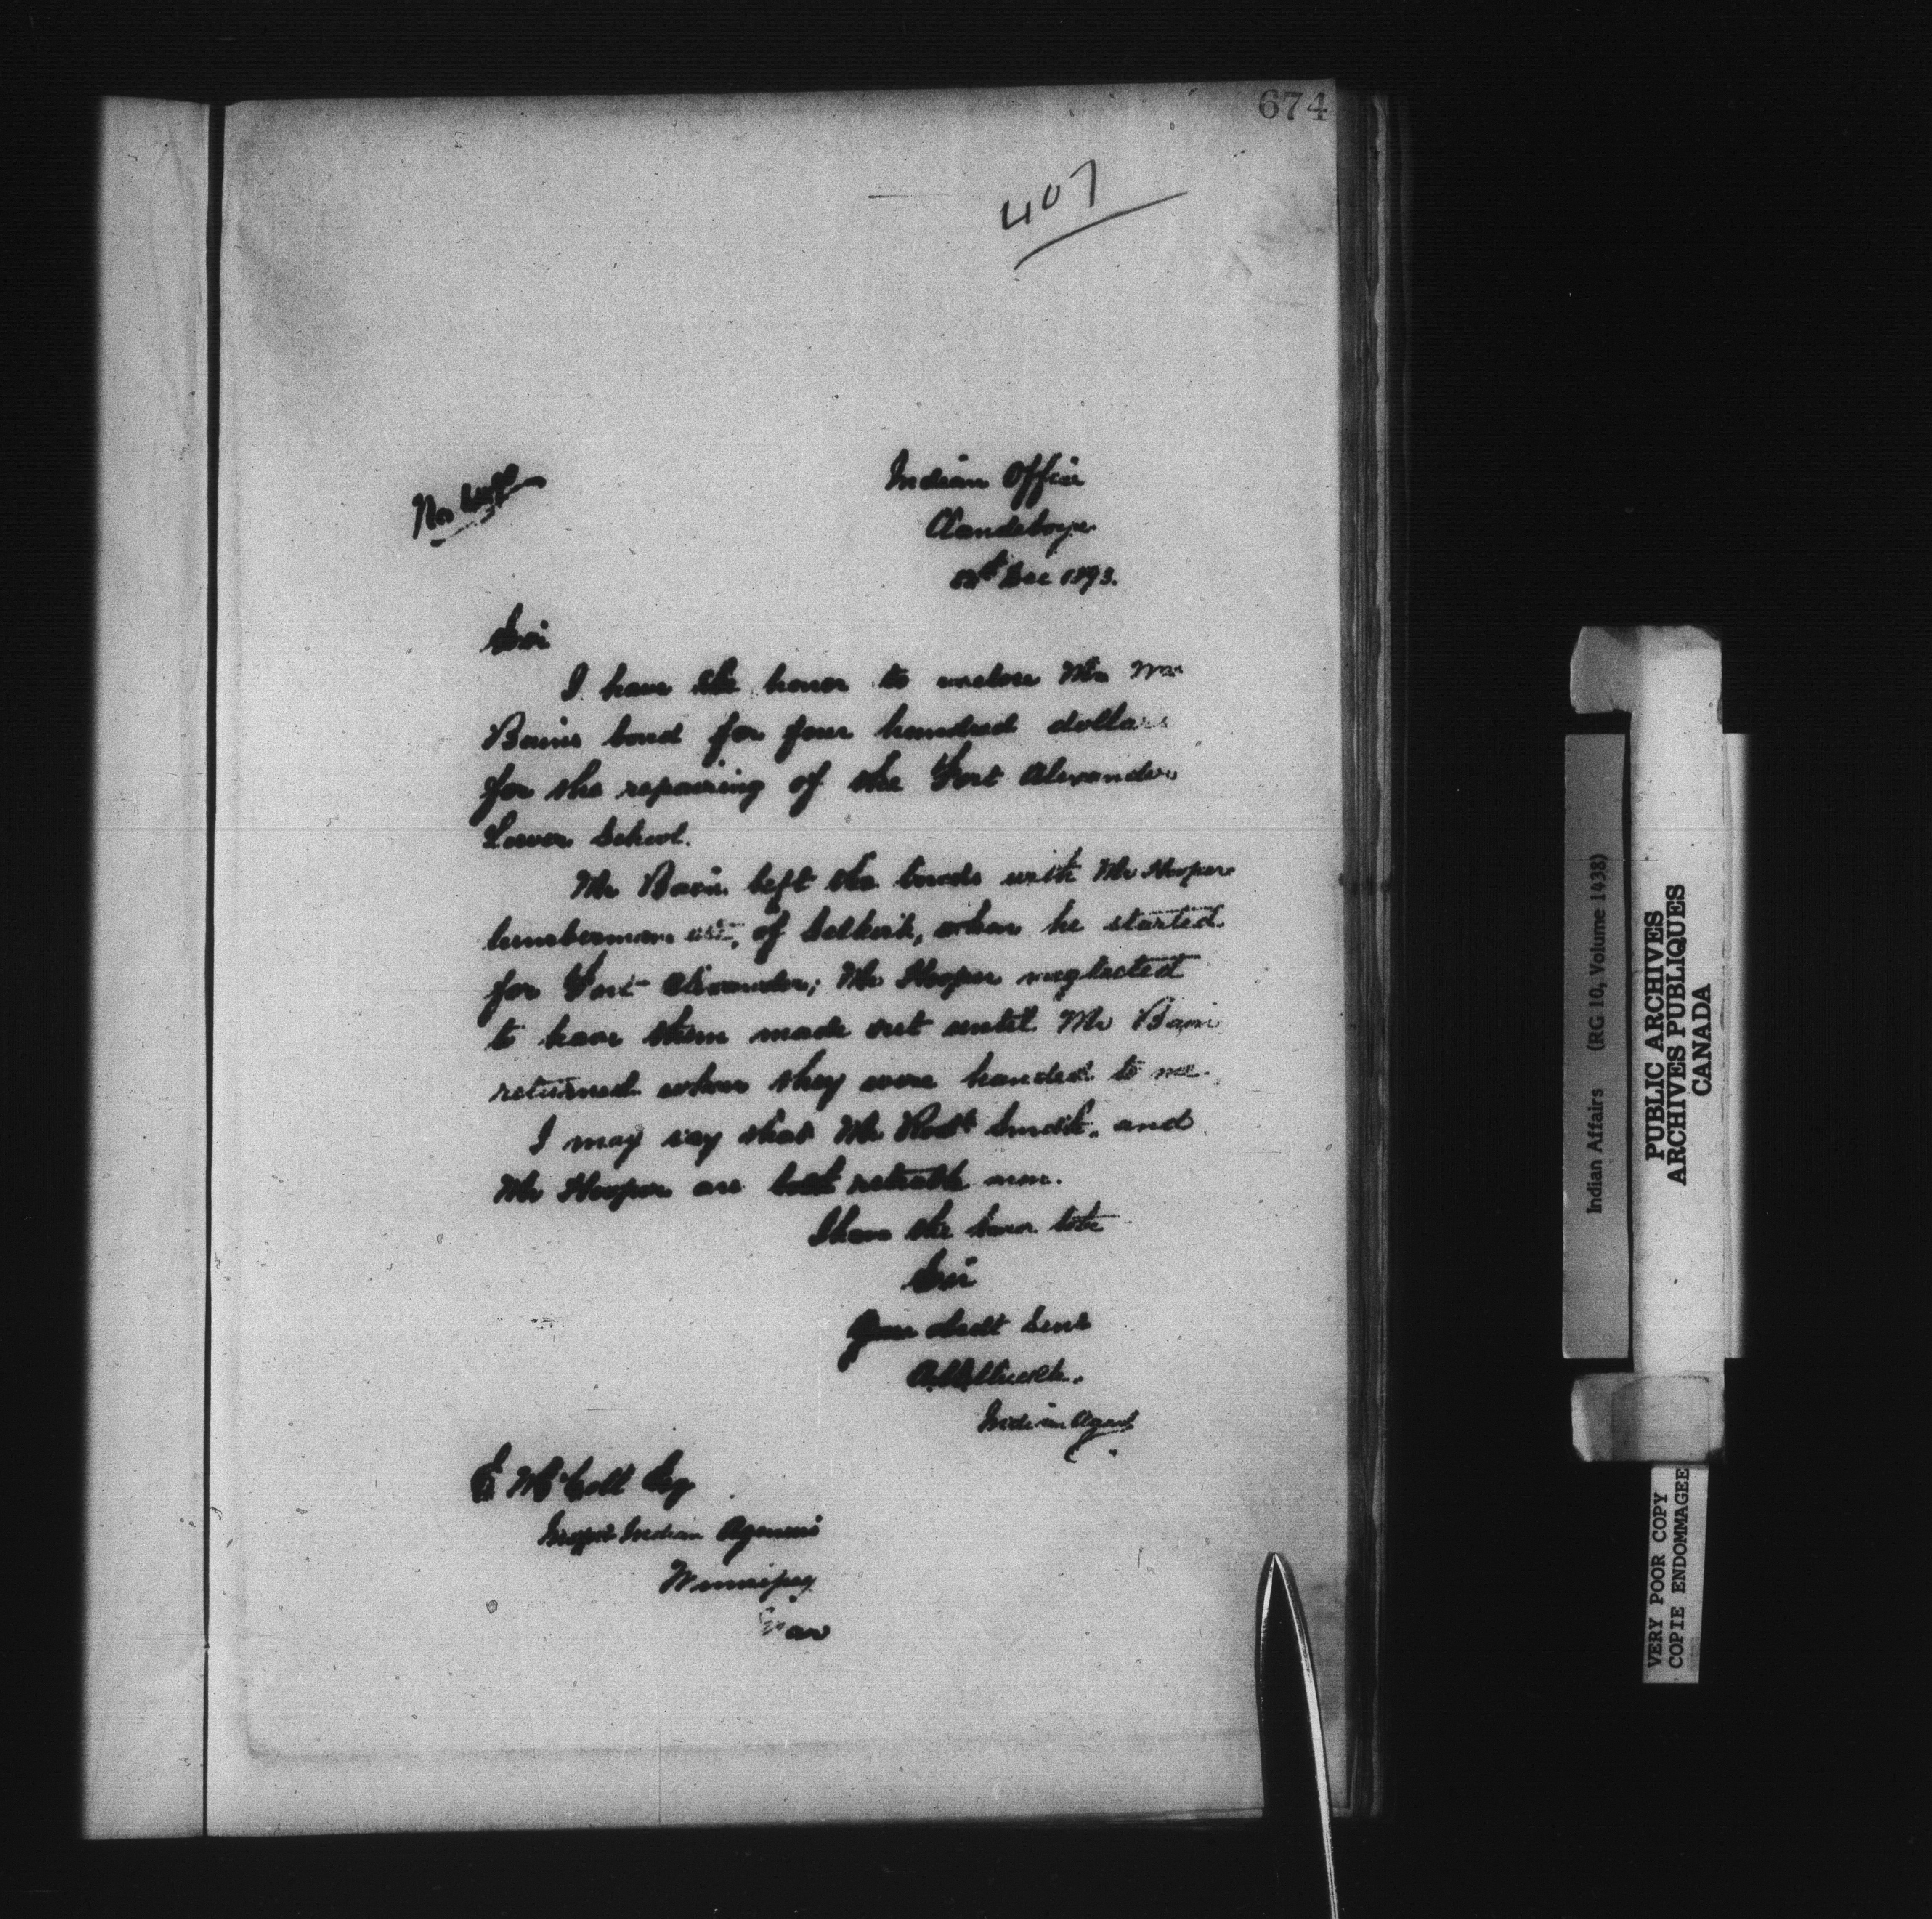 674
407
No
Indian Office
Clandeboye
Dec 1893.
Sir
I have the honor to enclose Mr Wm
Bains bond for four hundred dollars
for the repairing of the Fort Alexander
Lower School.
Mr Bain left the bonds with Mr Hooper
lumberman of Selkirk, when he started
for Fort Alexander; Mr Hooper neglected
to have them made out until Mr Bain
returned when they were handed to me.
I may say that Mr Robt Smith. and
Mr Hooper are both reliable men.
I have the honor to be
Sir
Your obedt Servt
Indian Agent
E McColl Esq
Inspr Indian Agencies
Winnipeg
Man
Indian Affairs (RG 10, Volume 1438)
PUBLIC ARCHIVES
ARCHIVES PUBLIQUES
CANADA
VERY POOR COPY
COPIE ENDOMMAGEE